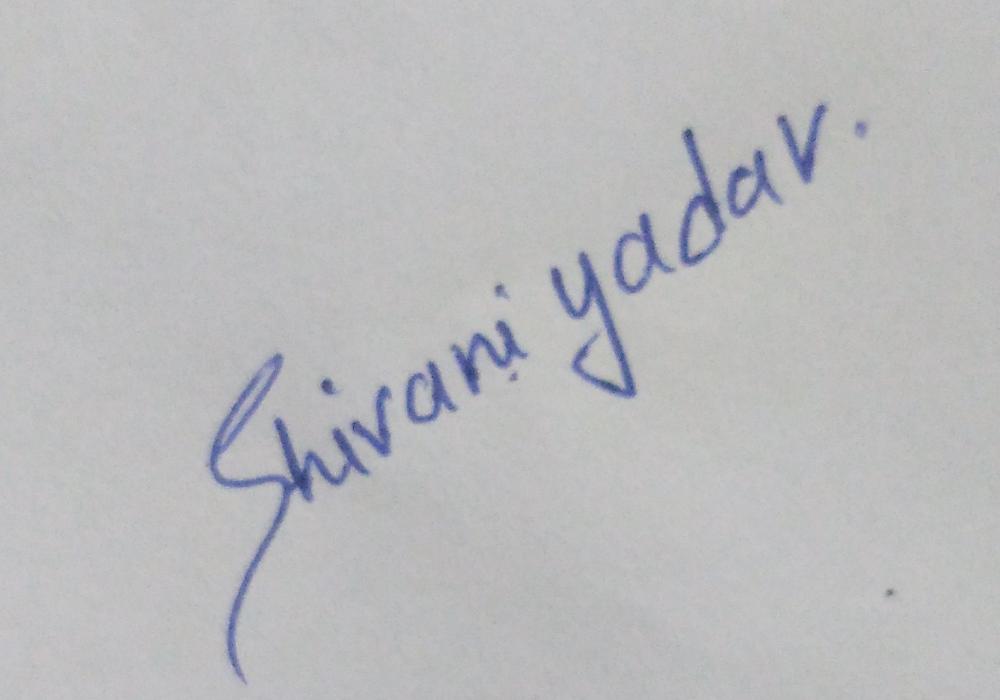 Shivani yadav.